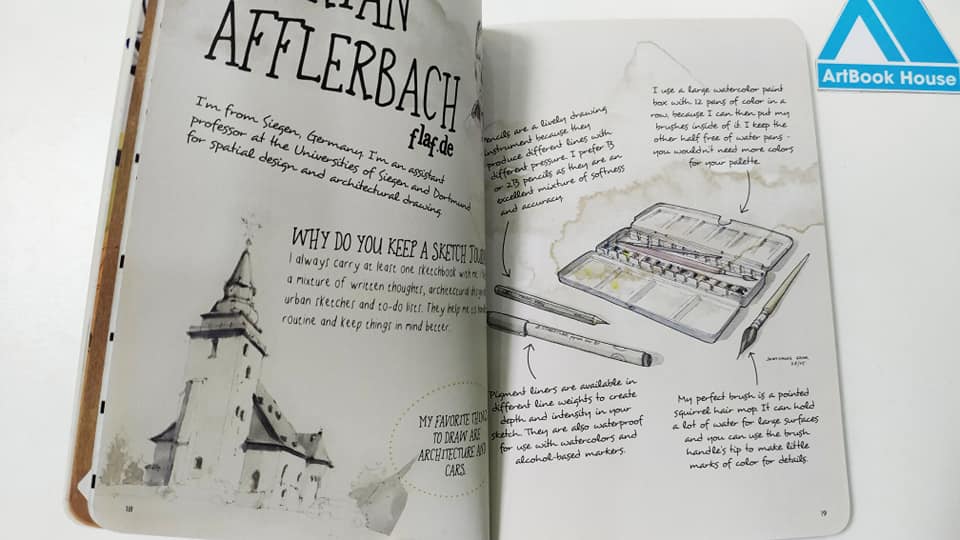 AFFLERBACH
flaf.de
I'm from Siegen, Germany. I'm an assistant
professor at the Universities of Siegen and Dortmund
for spatial design and architectural drawing.
WHY DO YOU KEEP A SKETCH
I always carry at least one sketchbook with me.
a mixture of written thoughts, architectural
urban sketches and to-do lists. They help me
routine and keep things in mind better.
MY FAVORITE
TO DRAW ARE
ARCHITECTURE AND
CARS.
18
pencils are a lively drawing
instrument because they
produce different lines with
different pressure. I prefer B
or 2B pencils as they are an
excellent mixture of softness
and accuracy.
I use a large watercolor paint
box with 12 pans of color in a
row, because I can then put my
brushes inside of it. I keep the
other half free of water pans -
you wouldn't need more colors
for your palette.
Pigment liners are available in
different line weights to create
depth and intensity in your
sketch. They are also waterproof
for use with watercolors and
alcohol-based markers.
My perfect brush is a pointed
squirrel hair mop. It can hold
a lot of water for large surfaces
and you can use the brush
handle's tip to make little
marks of color for details.
19
ArtBook House